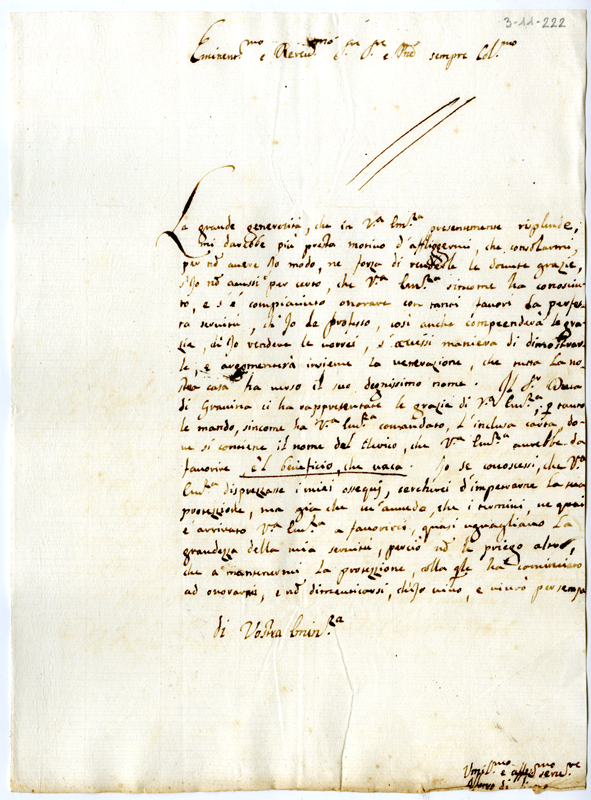 3-11-222
Eminent.mo e Rever.mo Sre Sre e Pne sempre Col.mo
La grande generosità, che in V.a Em.za presentemente risplende,
mi darebbe più presto motivo d'affliggermi, che consolarmi,
per nõ avere Io modo, ne forza di renderle le dovute grazie,
s'Io nõ avessi per certo, che V.a Em.za sincome ha conosciu-
to, e s'è compiaciuto onorare con tanti favori la perfet-
ta servitù, ch'Io le professo, così anche comprenderà le gra-
zie, ch'Io rendere le vorrei, s'avessi maniera di dimostrar-
le, e argomenterà insieme la venerazione, che tutta la no-
stra casa ha verso il suo degnissimo nome. Il S.r Duca
di Gravina ci ha rappresentate le grazie di V.a Em.za, e p tanto
le mando, sincome ha V.a Em.za comandato, l'inclusa carta, do-
ve si contiene il nome del Clerico, che V.a Em.za avrebbe da
favorire e'l beneficio, che vaca. Io se conoscessi, che V.a
Em.za disprezzasse i miei ossequj, cercherei d'impetrarne la sua
protezzione, ma già che m'avvedo, che i termini, ne quali
è arrivato V.a Em.za a favorirci, quasi uguagliano la
grandezza della mia servitù, perciò nõ la priego altro,
che a mantenermi la protezione, colla qle ha cominciato
ad onorarmi, e nõ dimenticarsi, ch'Io vivo, e vivrò per sempre
di Vostra Emin.za
Umil.mo e aff.mo serv.re
Alfonso di